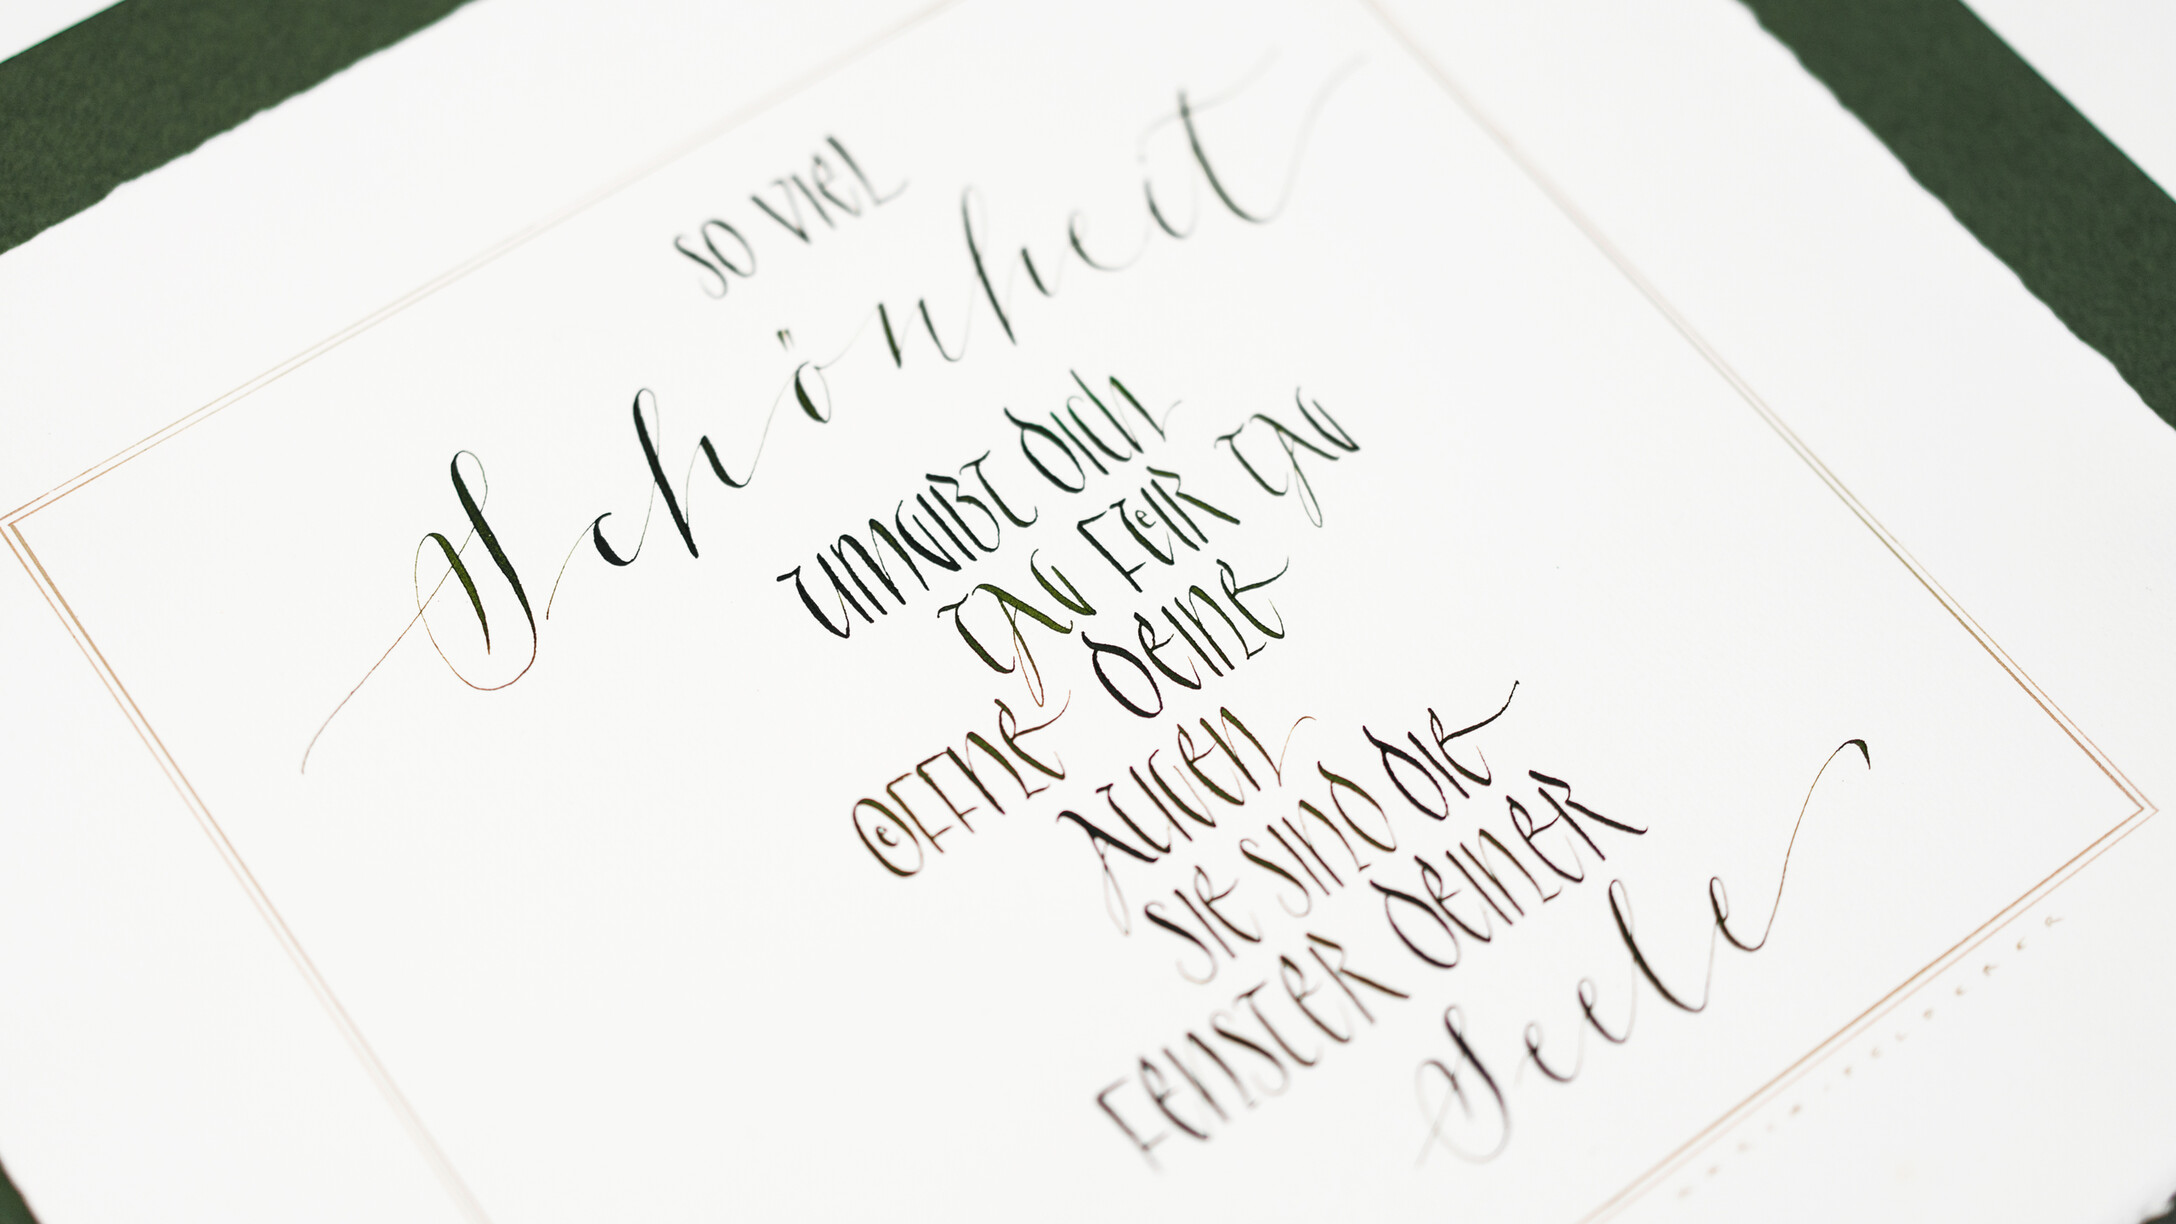 SO VIEL
Schönheit
UMGIBT DICH
TAG FÜR TAG
ÖFFNE DEINE
AUGEN
SIE SIND DIE
FENSTER DEINER
Seele